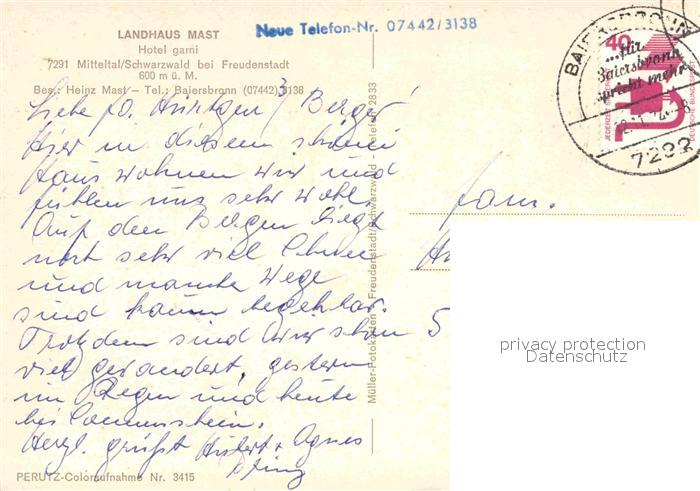 LANDHAUS MAST
Hotel garni
7291 Mitteltal/Schwarzwald bei Freudenstadt
600 m ü. M.
Bes.: Heinz Mast – Tel.: Baiersbronn (07442) 3138
Neue Telefon-Nr. 07442/3138
Liebe Berger!
Hier in diesem schönen
Haus wohnen wir und
fühlen uns sehr wohl.
Auf den Bergen liegt
noch sehr viel Schnee
und manche Wege
sind kaum begehbar.
Trotzdem sind wir schon
viel gewandert, gestern
im Regen und heute
bei Sonnenschein.
Herzl. grüßt Hubert + Agnes
PERUTZ-Coloraufnahme Nr. 3415
Müller-Fotokarten - Freudenstadt/Schwarzwald - Telefon 2833
Fam.
5
BAIERSBRONN
...für
Baiersbronn
spricht mehr
7292
40
JEDERZEIT
DEUTSCHE BUNDESPOST
privacy protection
Datenschutz